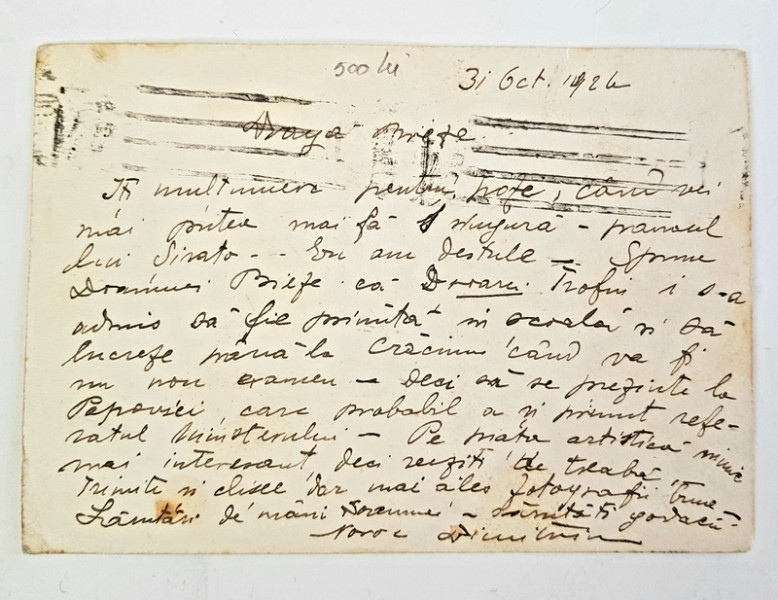 500 lei
31 Oct. 1926
Draga
Iți mulțumesc pentru poze, când vei
mai putea mai fă singură – panoul
lui Sirato – Eu am destule – Spune
Doamnei ca Trofin i s-a
admis să fie primită in școală și să
lucreze până la Crăciun când va fi
un nou examen – deci să se prezinte la
Popovici care probabil a și primit refe-
ratul Ministerului – Pe piața artistică nimic
mai interesant deci de treabă
Trimite și clisee dar mai ales fotografii bune
de mâni Doamnei –
Noroc Dimitriu